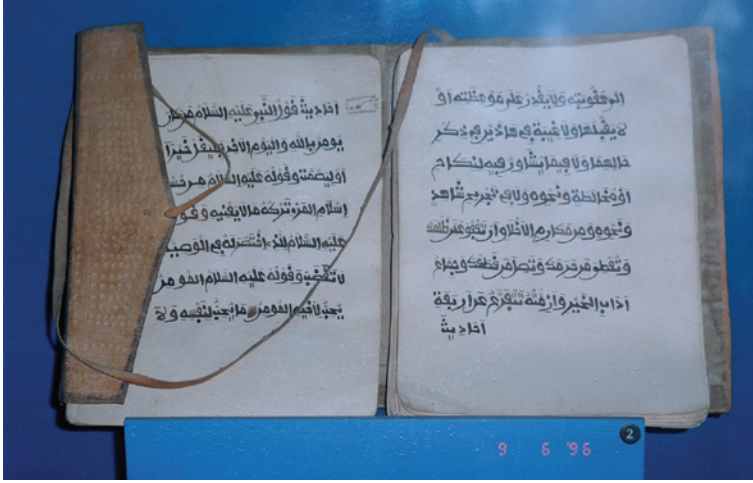 إلى عقوبته ولا يقدر على موعظته أو
لا يقبلها ولا غيبة في هاذين في ذكر
حالهما ولا فيما يشاور فيه لنكاح
أو مخالطة ونحوه ولا في تجريح شاهد
ونحوه ومن مكارم الأخلاق أن تعفو عمن ظلمك
وتعطي من حرمك وتصل من قطعك وجماع
آداب الخير وأزمته تتفرع عن أربعة
أحاديث
أحاديث قول النبي عليه السلام من كان
يومن بالله واليوم الآخر فليقل خيرا
أو ليصمت وقوله عليه السلام من حسن
إسلام المرء تركه ما لا يعنيه وقو
عليه السلام للذي اختصر له في الوصية
لا تغضب وقوله عليه السلام المومن
يحب لأخيه المومن ما يحب لنفسه ولا
2
9 6 '96